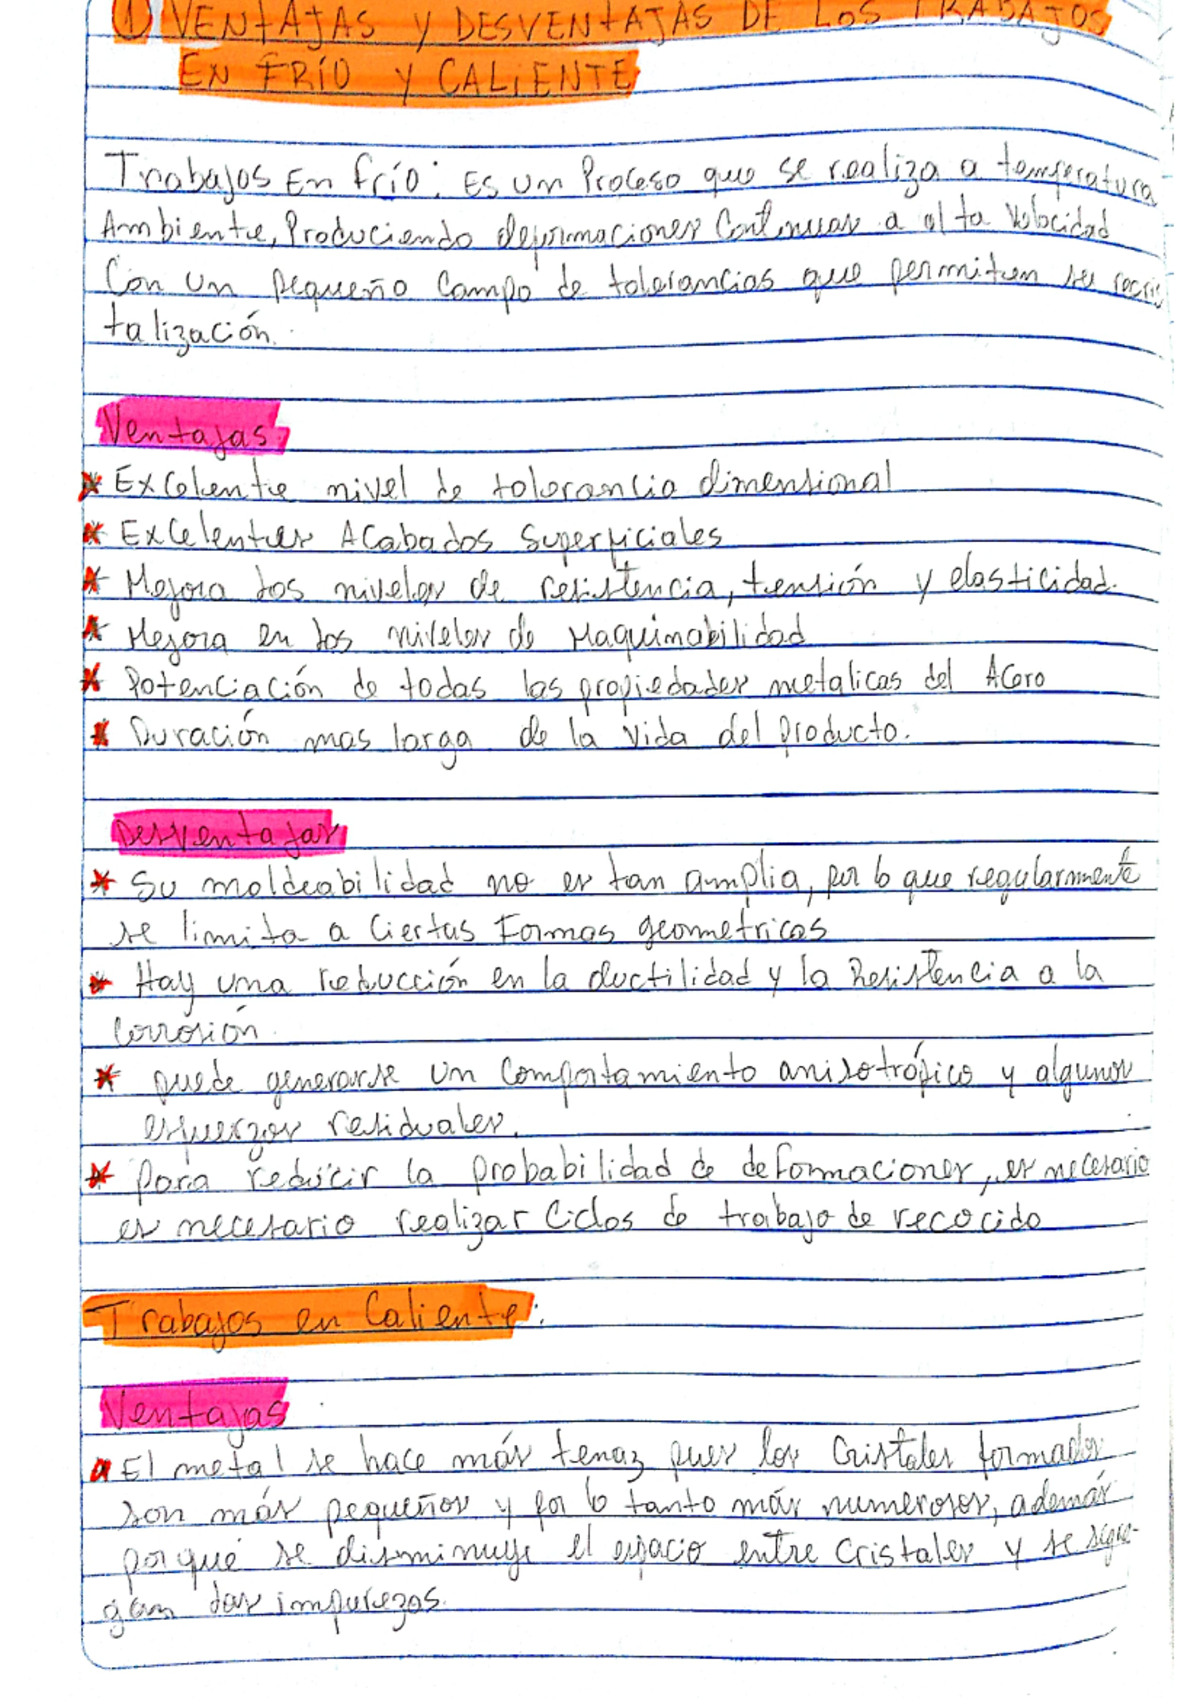 ① VENTAJAS Y DESVENTAJAS DE LOS TRABAJOS
EN FRÍO Y CALIENTE
Trabajos En frío: Es un Proceso que se realiza a temperatura
Ambiente, Produciendo deformaciones Continuas a alta Velocidad
Con un pequeño Campo de tolerancias que permiten su recris
talización.
Ventajas
* Excelente nivel de tolerancia dimensional
* Excelentes Acabados Superficiales
* Mejora los niveles de resistencia, tensión y elasticidad.
* Mejora en los niveles de Maquinabilidad
* Potenciación de todas las propiedades metalicas del Acero
* Duración mas larga de la vida del producto.
Desventajas
* Su moldeabilidad no es tan amplia, por lo que regularmente
se limita a Ciertas Formas geometricas
* Hay una reducción en la ductilidad y la Resistencia a la
Corrosión
* puede generarse un Comportamiento anisotrópico y algunos
esfuerzos residuales.
* Para reducir la probabilidad de deformaciones, es necesario
es necesario realizar Ciclos de trabajo de recocido
Trabajos en Caliente:
Ventajas
El metal se hace más tenaz pues los Cristales formados
son más pequeños y por lo tanto más numerosos, además
porqué se disminuye el espacio entre Cristales y se segre-
gan las impurezas.